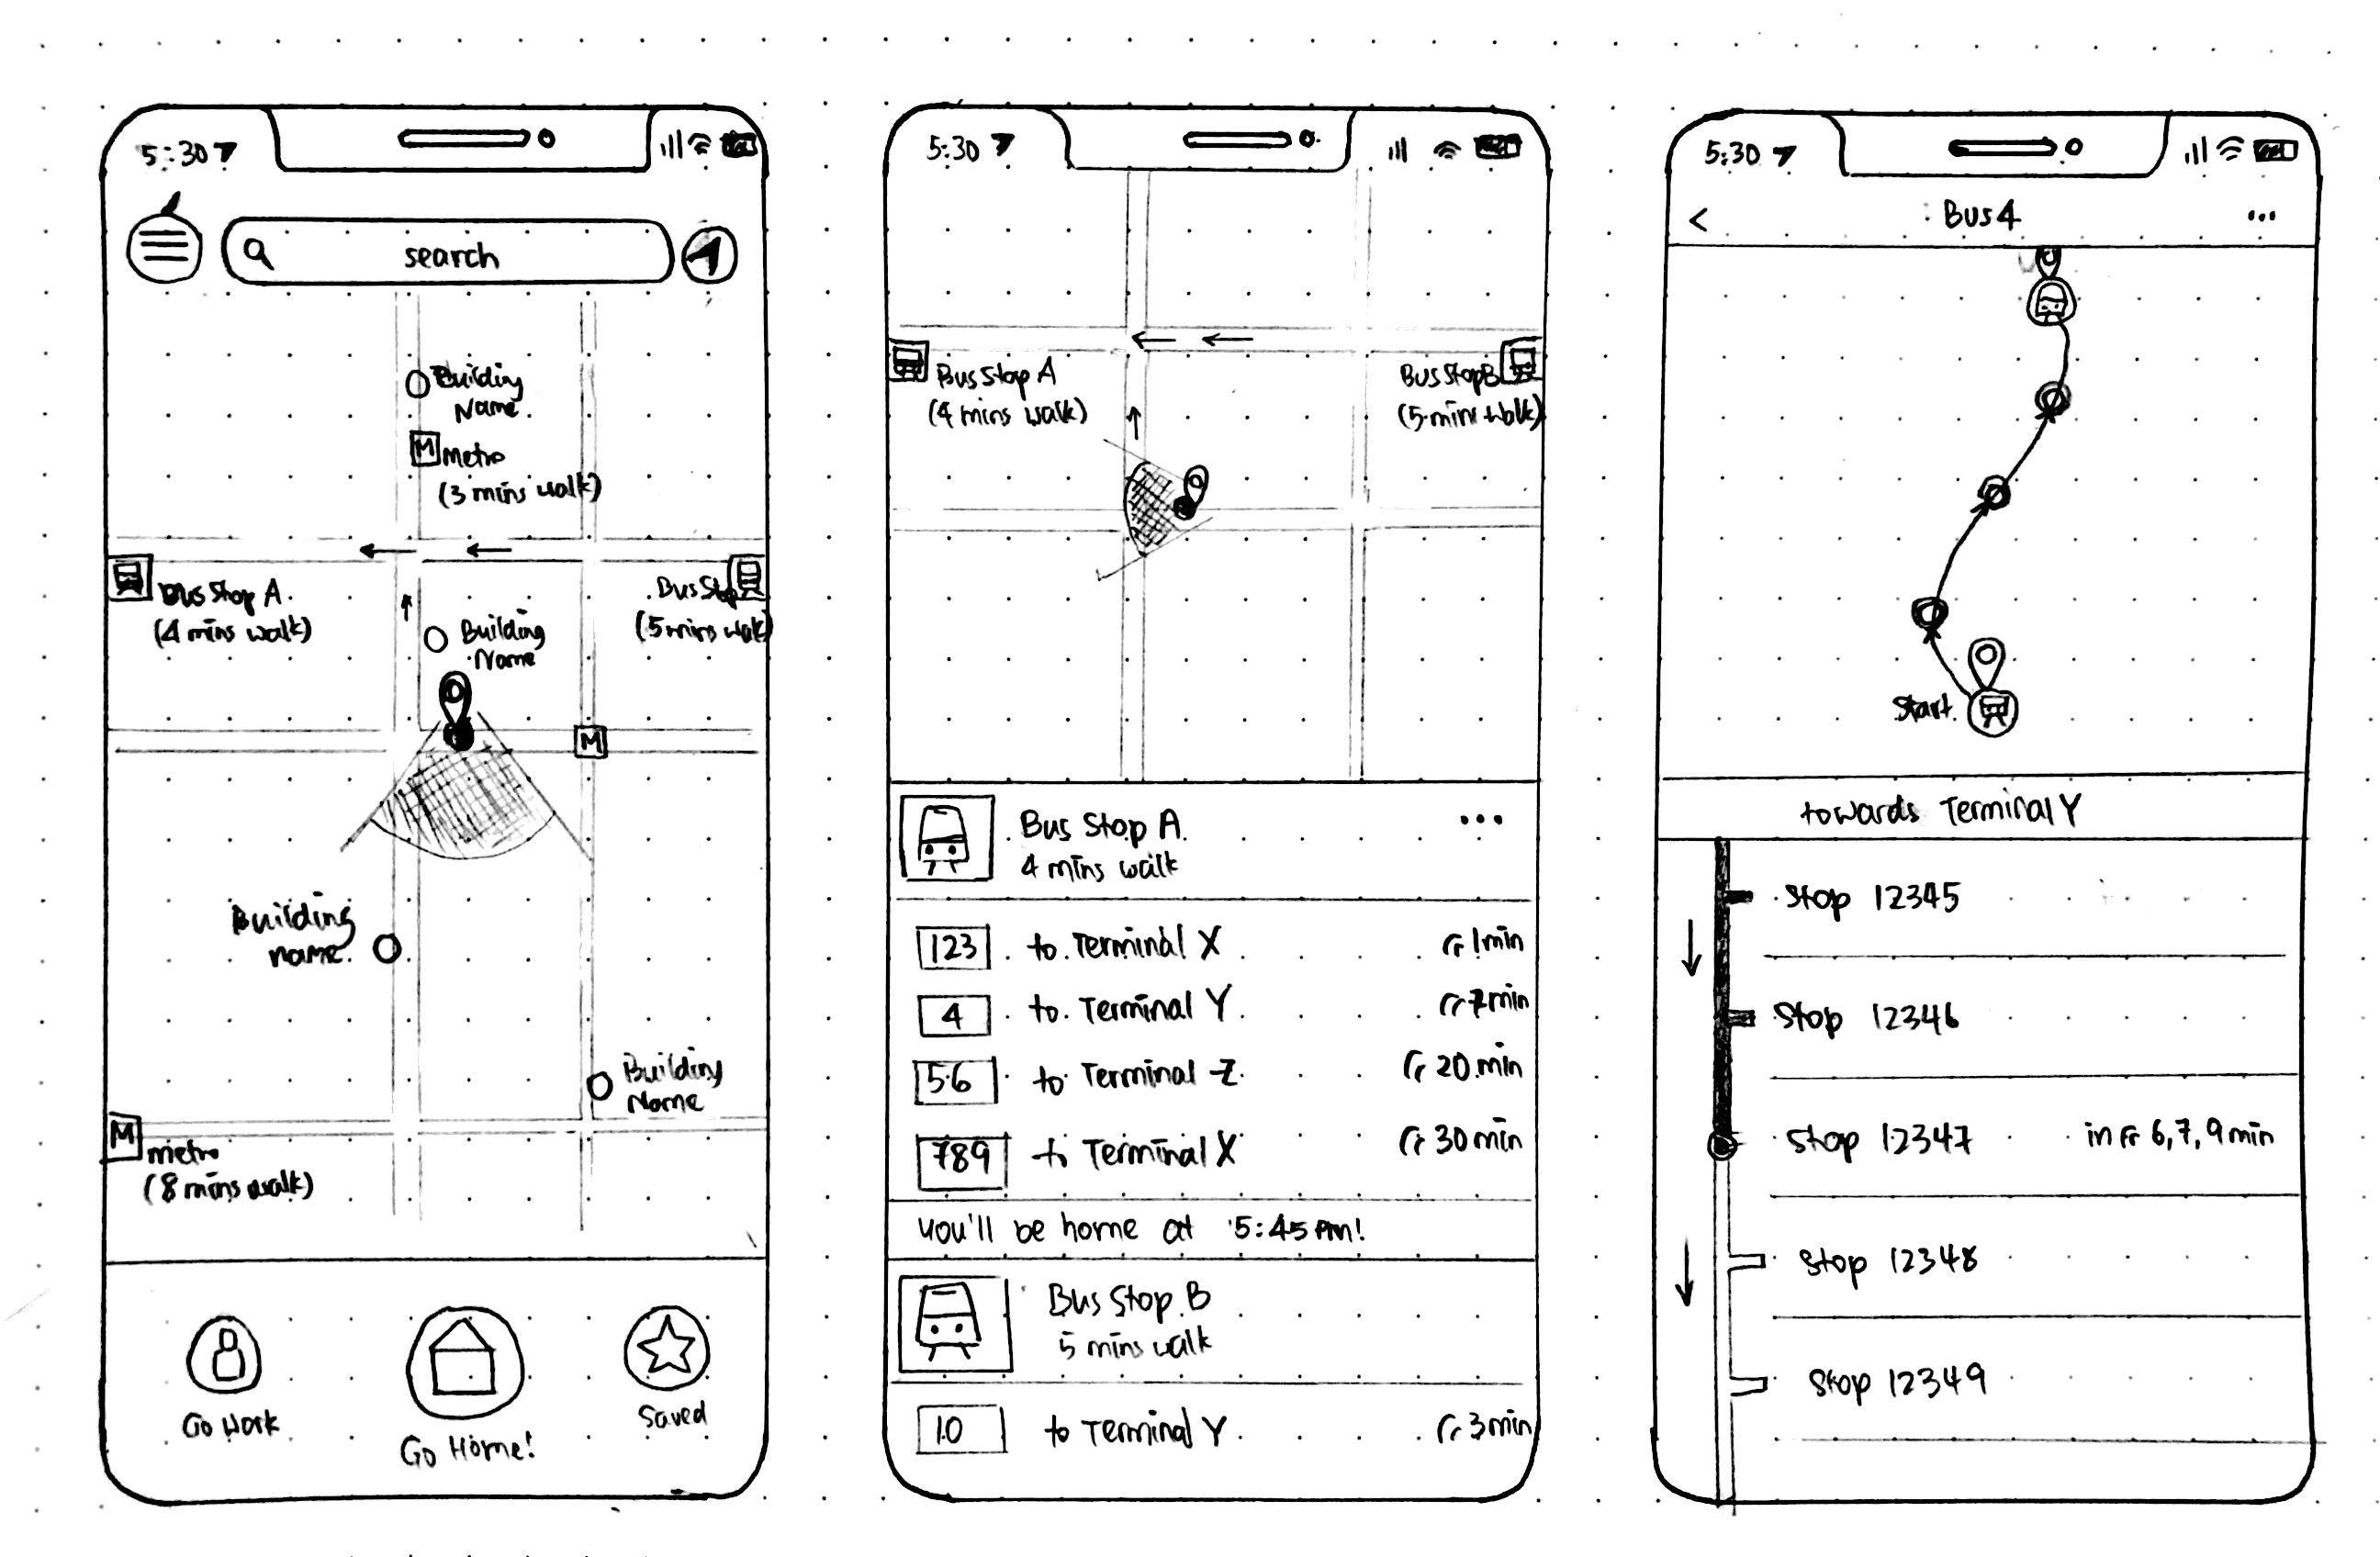 5:30
search
Building
Name.
M metro
(3 mins walk)
Bus Stop A.
(4 mins walk)
Bus Stop
(5 mins walk)
Building
Name
M
Building
name.
Building
Name
M
metro
(8 mins walk)
Go Work
Go Home!
Saved
5:30
Bus Stop A
(4 mins walk)
Bus Stop B
(5 mins walk)
Bus Stop A.
4 mins walk
...
123 to Terminal X 1 min
4 to Terminal Y 7 min
56 to Terminal Z 20 min
789 to Terminal X 30 min
you'll be home at 5:45 pm!
Bus Stop B
5 mins walk
10 to Terminal Y 3 min
5:30
< Bus 4 ...
Start
towards Terminal Y
Stop 12345
Stop 12346
Stop 12347 in 6, 7, 9 min
Stop 12348
Stop 12349